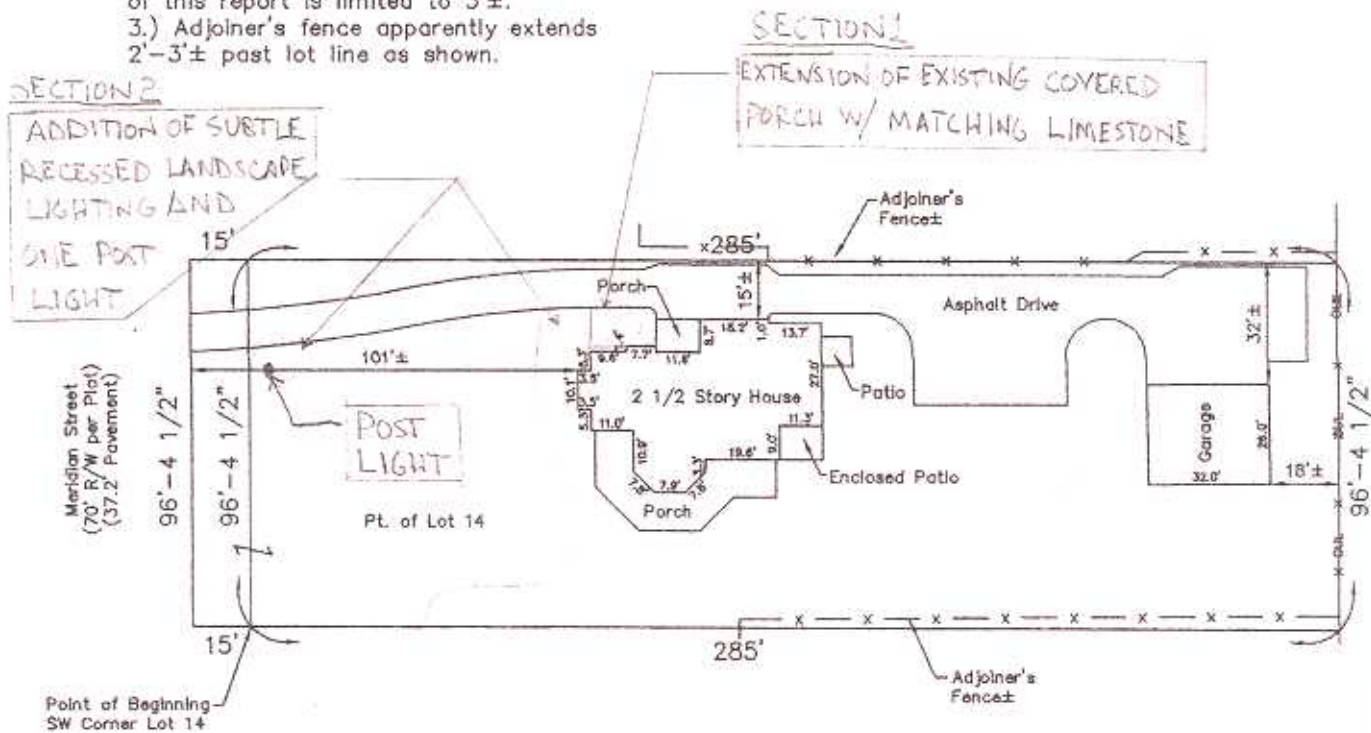 of this report is limited to 5'±.
3.) Adjoiner's fence apparently extends
2'-3'± past lot line as shown.
SECTION 1
EXTENSION OF EXISTING COVERED
PORCH W/ MATCHING LIMESTONE
SECTION 2
ADDITION OF SUBTLE
RECESSED LANDSCAPE
LIGHTING AND
ONE POST
LIGHT
Adjoiner's
Fence±
15'
285'
Porch
15'±
Asphalt Drive
32'±
101'±
8.7'
18.2'
1.0'
13.7'
9.6'
7.7'
11.8'
10.1'
5.3'
11.0'
10.9'
7.9'
19.6'
9.0'
11.3'
27.0'
2 1/2 Story House
Patio
Enclosed Patio
Porch
Garage
26.0'
32.0'
18'±
POST
LIGHT
Meridian Street
(70' R/W per Plat)
(37.2' Pavement)
96'-4 1/2"
96'-4 1/2"
96'-4 1/2"
Pt. of Lot 14
15'
285'
Adjoiner's
Fence±
Point of Beginning
SW Corner Lot 14